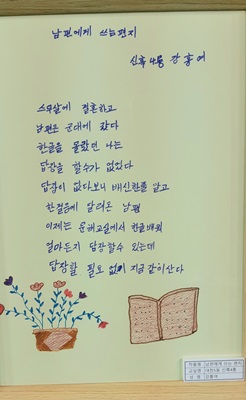 남편에게 쓰는편지
신흑4통 강흥예
스무살에 결혼하고
남편은 군대에 갔다
한글을 몰랐던 나는
답장을 할수가 없었다
답장이 없다보니 배신한줄 알고
한걸음에 달려온 남편
이제는 문해교실에서 한글배워
얼마든지 답장할수 있는데
답장할 필요 없이 지금 같이산다
작품명 남편에게 쓰는 편지